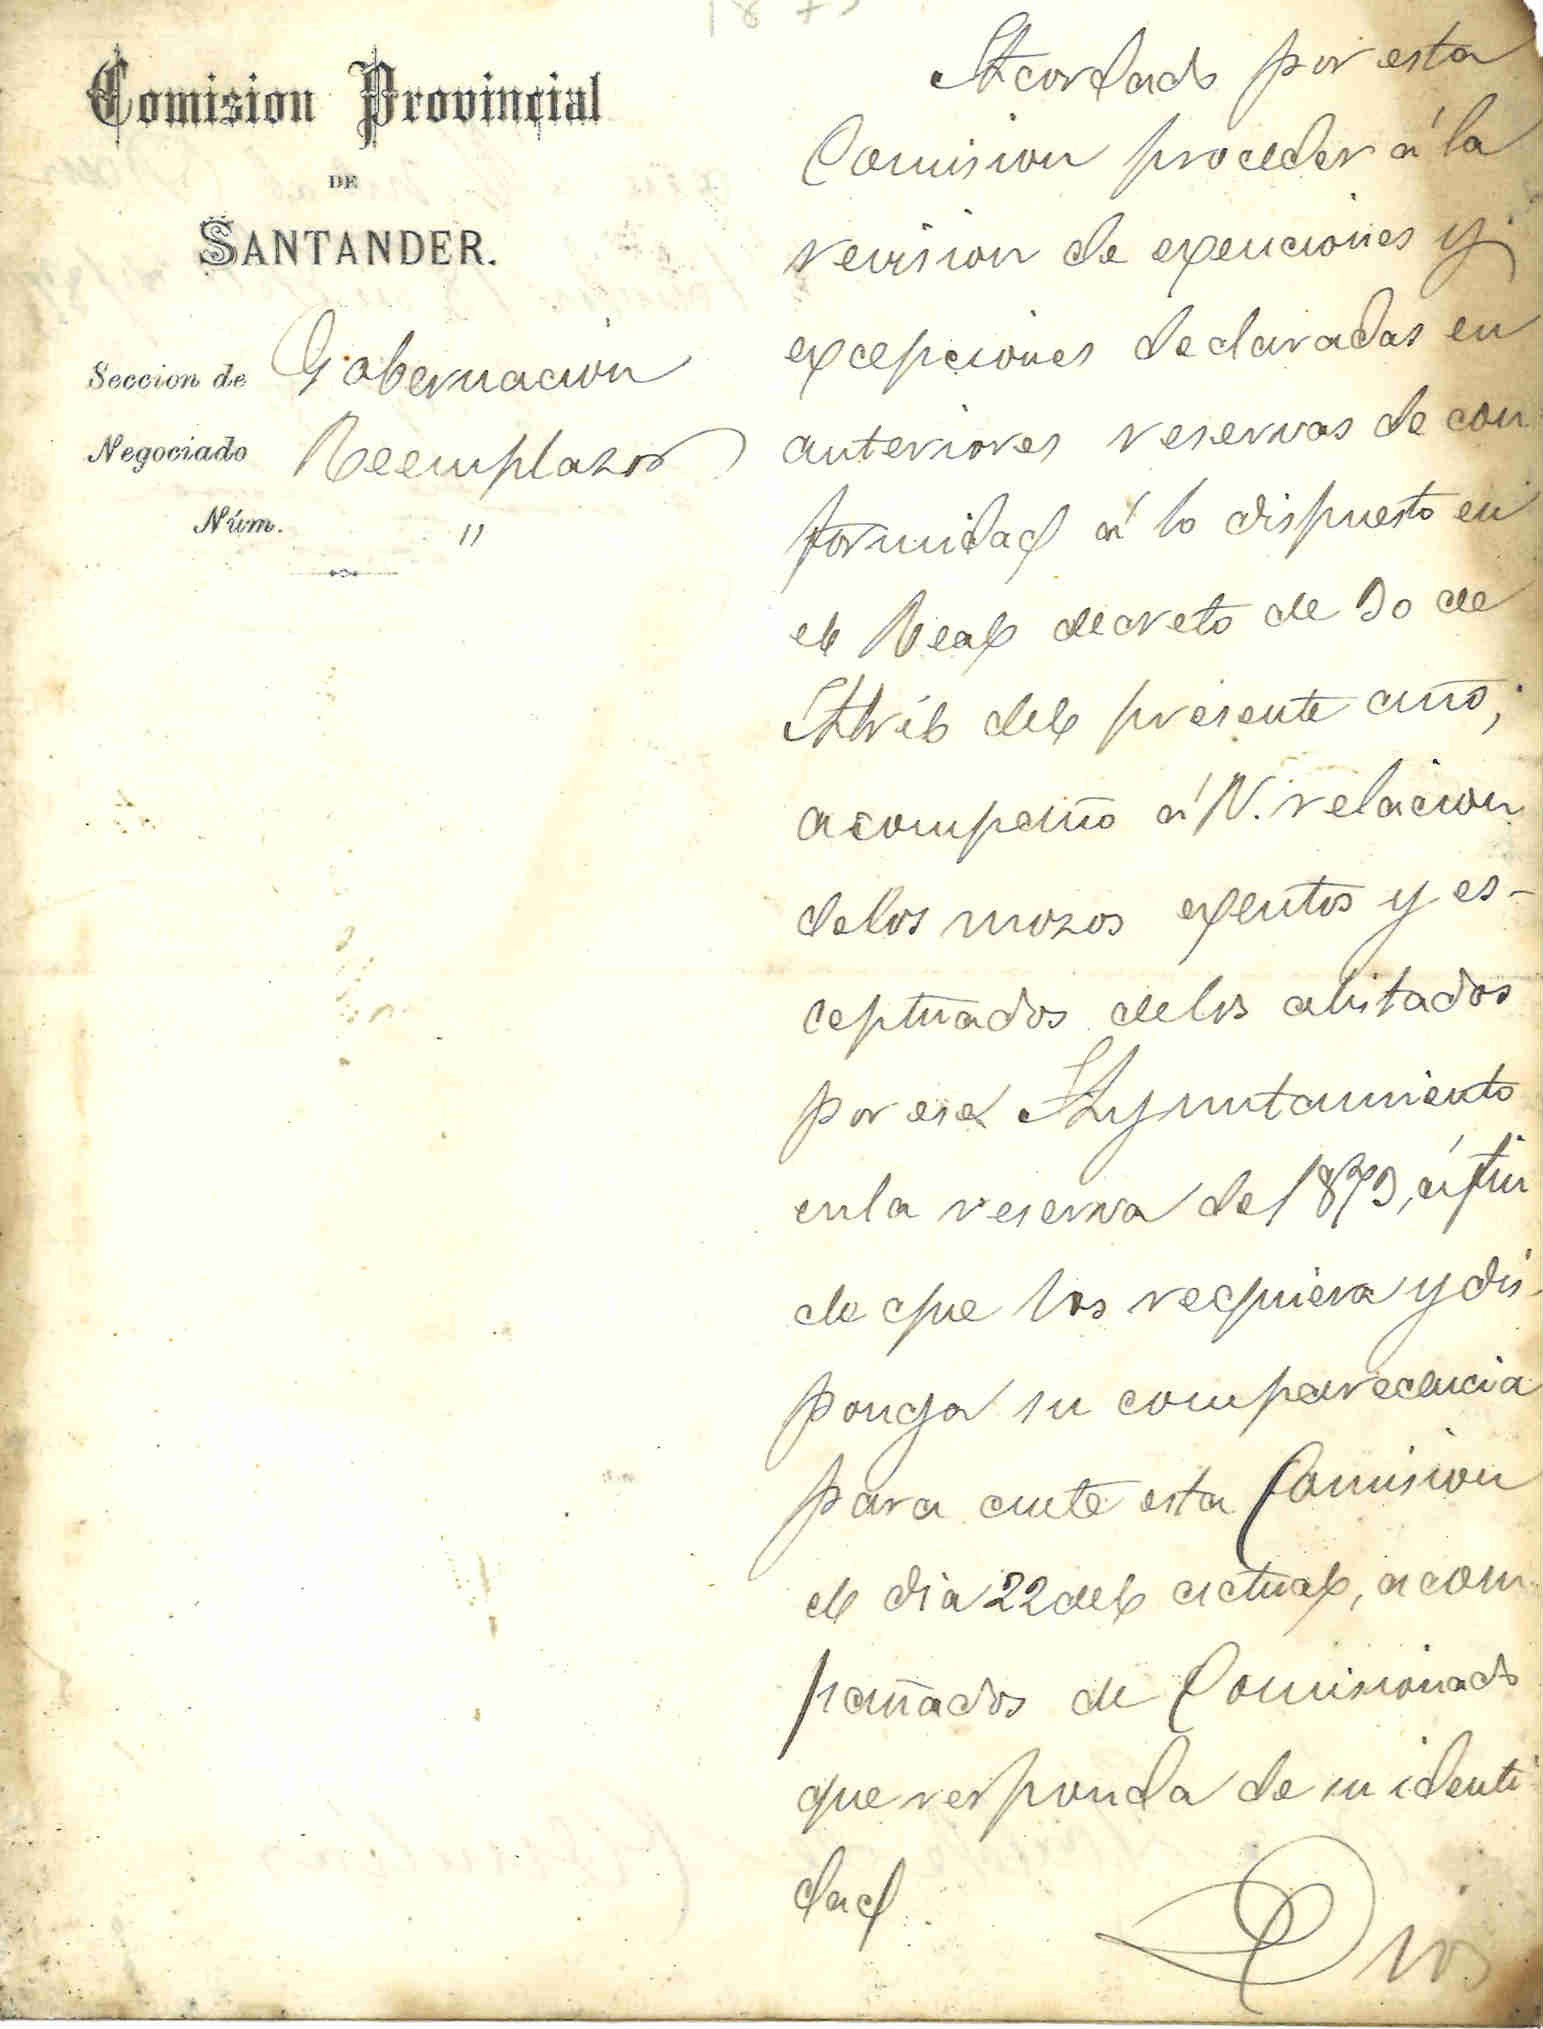 Comision Provincial
DE
SANTANDER.
Seccion de Gobernacion
Negociado Reemplazos
Núm. "
Acordado por esta
Comision proceder á la
revision de exenciones y
excepciones declaradas en
anteriores reservas de con
formidad á lo dispuesto en
el Real decreto de 30 de
Abril del presente año,
acompaño á V. relacion
de los mozos exentos y es-
ceptuados de los alistados
por ese Ayuntamiento
en la reserva de 1873, á fin
de que los requiera y dis-
ponga su comparecencia
para ante esta Comision
el dia 22 del actual, acom-
pañados de Comisionado
que responda de su identi
dad.
Dios